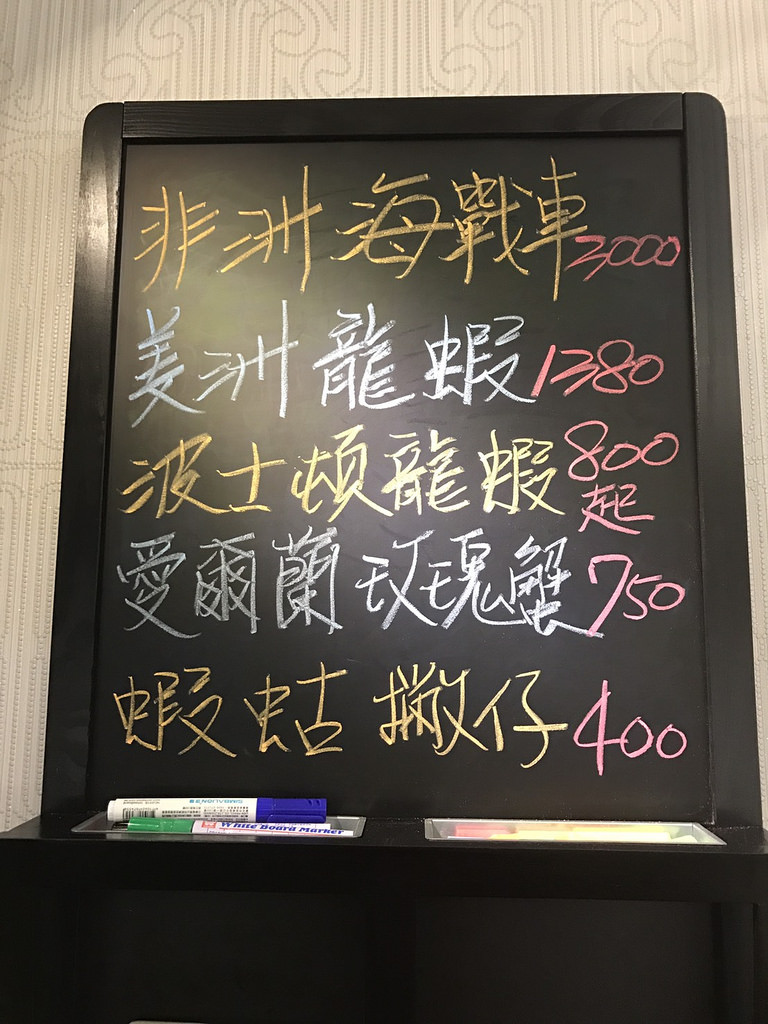 非洲海戰車3000
美洲龍蝦1380
波士頓龍蝦800
起
愛爾蘭玫瑰蟹750
蝦蛄撇仔400
SIMBALION
White Board Marker